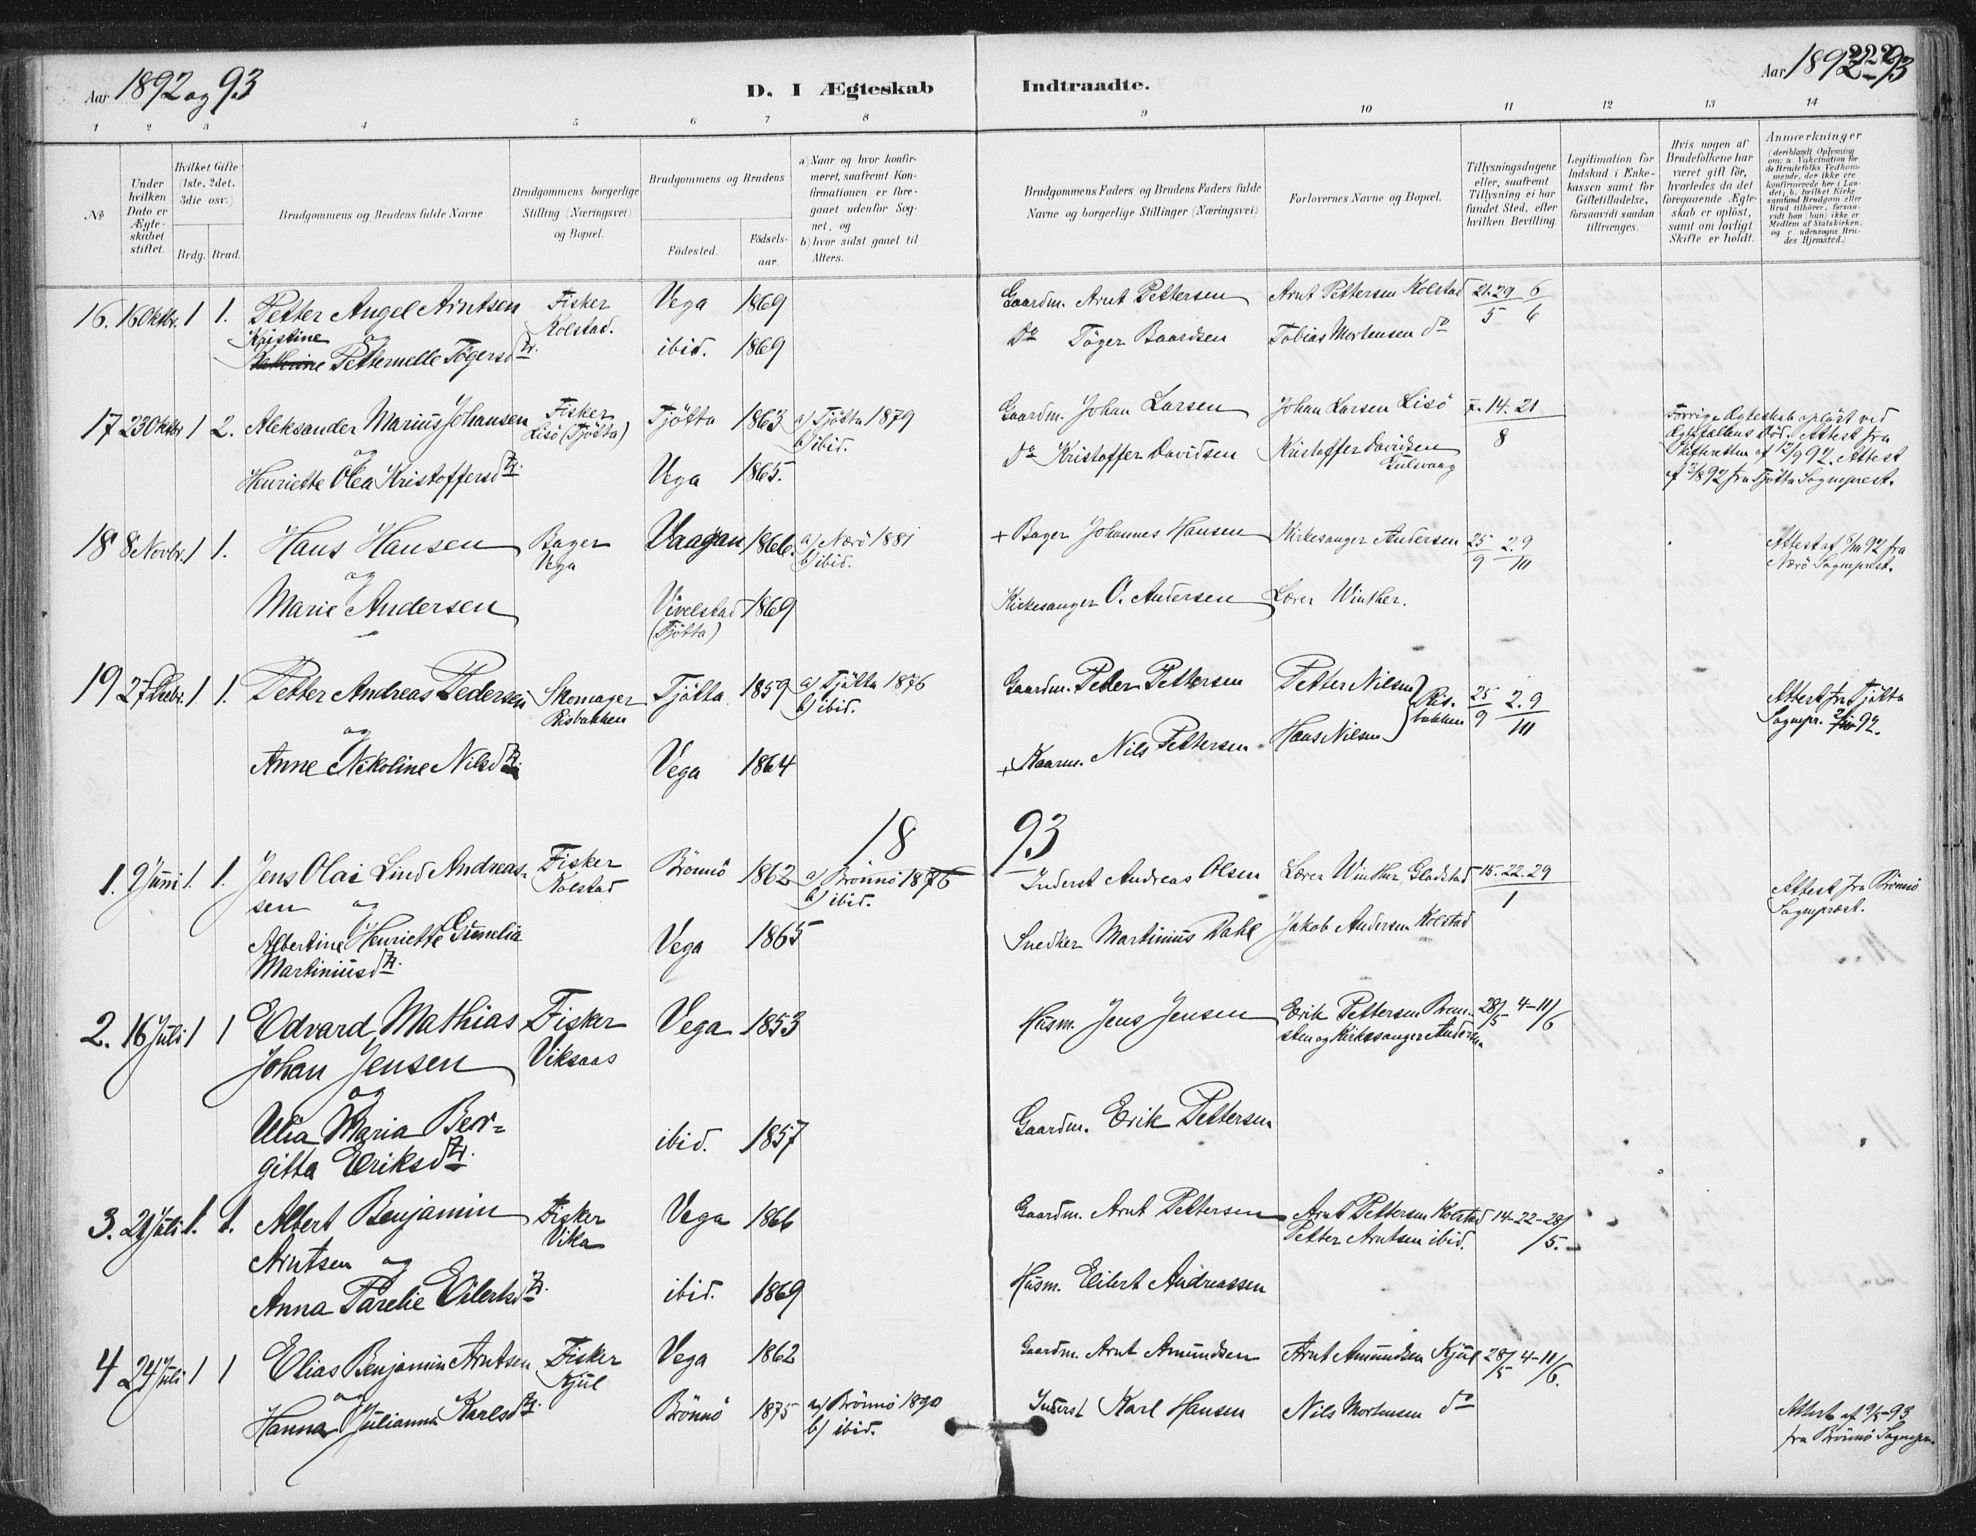 Aar 1892 og 93
D. I Ægteskab Indtraadte.
Aar 1892-93
222
1 2 3 4 5 6 7 8 9 10 11 12 13 14
№
Under hvilken Dato er Ægteskabet stiftet.
Hvilket Gifte (1ste, 2det, 3die osv.)
Brdg. Brud.
Brudgommens og Brudens fulde Navne
Brudgommens borgerlige Stilling (Næringsvei) og Bopæl.
Brudgommens og Brudens
Fødested. Fødsels-aar.
a) Naar og hvor konfirmeret, saafremt Konfirmationen er foregaaet udenfor Sognet, og
b) hvor sidst gaaet til Alters.
Brudgommens Faders og Brudens Faders fulde Navne og borgerlige Stillinger (Næringsvei)
Forlovernes Navne og Bopæl.
Tillysningsdagene eller, saafremt Tillysning ei har fundet Sted, efter hvilken Bevilling.
Legitimation for Indskud i Enkekassen samt for Giftetilladelse, forsaavidt saadan tiltrænges.
Hvis nogen af Brudefolkene har været gift før, hvorledes da det foregaaende Ægteskab er opløst, samt om lovligt Skifte er holdt.
Anmærkninger
(deriblandt Oplysning om: a. Vakcination for de Brudefolks Vedkommende, der ikke ere konfirmerede her i Landet; b. hvilket Kirkesamfund Brudgom eller Brud tilhører, forsaavidt han (hun) ikke er Medlem af Statskirken, og c. udensogns Brudes Hjemsted.)
16. 16 Oktbr. 1 1. Petter Angel Arntsen Fisker Vega 1869 Gaardm. Arnt Pettersen Arnt Pettersen Kolstad 21.29/5 6/6
Kristine og Kolstad.
Petternelle Tøgersdtr. ibid. 1869 Do Tøger Baardsen Tobias Mortensen do
17 23 Oktbr 1 2. Aleksander Marius Johansen Fisker Tjøtta 1863 a) Tjøtta 1879 Gaardm. Johan Larsen Johan Larsen Lisö 7.14.21/8 Forrige Ægteskab opløst ved
og Lisö (Tjøtta) b) ibid. Ægtefællens Død. Attest fra
Henriette Olea Kristoffersdtr. Vega 1865. Do Kristoffer Davidsen Kristoffer Davidsen Skifteretten af 12/9 92. Attest
af 2/8 92 fra Tjøtta Sogneprest.
18 8 Novbr. 1 1. Hans Hansen Bager Vaagan 1866. a) Nærö 1881 + Bager Johannes Hansen Kirkesanger Andersen 25/9 - 2.9/10 Attest af
og Vega b) ibid. Nærö Sogneprest.
Marie Andersen Vivelstad 1869 Kirkesanger O. Andersen Lærer Winther.
(Tjøtta)
19 27 Decbr. 1 1. Petter Andreas Pedersen Skomager Tjøtta 1859 a) Tjøtta 1876 Gaardm. Peter Pettersen Petter Nilsen 25/9 2.9/10 Attest fra Tjøtta
og Risbakken b) ibid. Risbakken Sognepr.
Anne Nekoline Nilsdtr. Vega 1864 + Kaarm. Nils Pettersen Hans Nilsen
1893
1. 9 Juni 1. 1. Jens Olai Lind Andreas- Fisker Brönnö 1862 a) Brönnö 1876 Inderst Andreas Olsen Lærer Winther Gladstad 15.22.29/1 Attest fra Brönnö
sen og Kolstad b) ibid. Sogneprest.
Albertine Henriette Gumelia Vega 1865 Snedker Martinius Dahl Jakob Andersen Kolstad
Martiniusdtr.
2. 16 Juli 1 1 Edvard Mathias Fisker Vega 1853 Husm. Jens Jensen Erik Pettersen Brem- 28/5 4-11/6
Johan Jensen Viksaas sten og Kirkesanger Andersen
og
Ulia Maria Ber-
gitta Eriksdtr. ibid. 1857 Gaardm. Erik Pettersen
3. 21 Juli 1. 1. Albert Benjamin Fisker Vega 1866 Gaardm. Arnt Pettersen Arnt Pettersen Kolstad 14-22-28/5.
Arntsen og Vika Petter Arntsen ibid.
Anna Parelie Eilertsdtr. ibid. 1869 Husm. Eilert Andreassen
4 24 Juli 1 1 Elias Benjamin Arntsen Fisker Vega 1862 Gaardm. Arnt Amundsen Arnt Amundsen Kjul 28/5 4-11/6.
og Kjul
Hanna Julianna Karlsdtr. Brönnö 1875 a) Brönnö 1890 Inderst Karl Hansen Nils Mortensen do Attest af 9/5-93
b) ibid. fra Brönnö Sognepr.